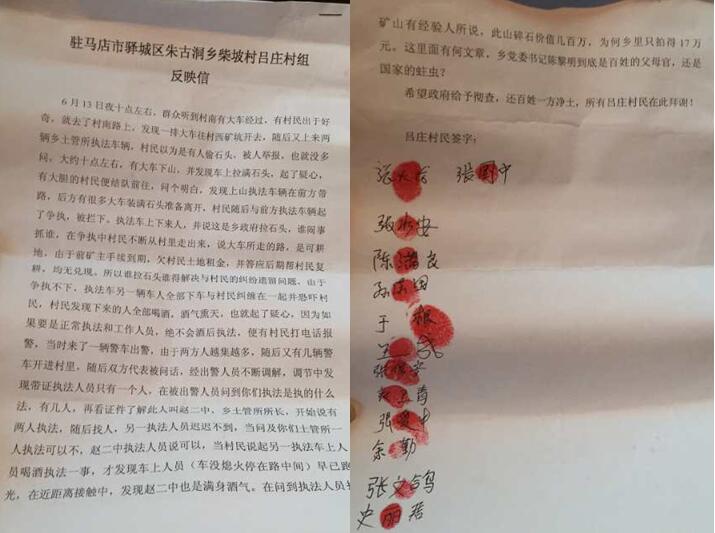 驻马店市驿城区朱古洞乡柴坡村吕庄村组
反映信
6月13日夜十点左右，群众听到村南有大车经过，有村民出于好
奇，就去了村南路上，发现一排大车往村西矿坑开去，随后又上来两
辆乡土管所执法车辆，村民以为是有人偷石头，被人举报，也就没多
问，大约十点左右，有大车下山，并发现车上拉满石头，起了疑心，
有大胆的村民便结队前往，问个明白，发现上山执法车辆在前方带
路，后方有很多大车装满石头准备离开，村民随后与前方执法车辆起
了争执，被拦下。执法车上下来人，并说这是乡政府拉石头，谁闹事
抓谁，在争执中村民不断从村里走出来，说大车所走的路，是可耕
地，由于前矿主手续到期，欠村民土地租金，并答应后期帮村民复
耕，均无兑现。所以谁拉石头谁得解决与村民的纠纷遗留问题，由于
争执不下，执法车另一辆车人全部下车与村民纠缠在一起并恐吓村
民，村民发现下来的人全部喝酒。酒气熏天，也就起了疑心，因为如
果要是正常执法和工作人员，绝不会酒后执法，便有村民打电话报
警，当时来了一辆警车出警，由于两方人越集越多，随后又有几辆警
车开进村里，随后双方代表被问话，经出警人员不断调解，调节中发
现带证执法人员只有一个人，在被出警人员问到你们执法是执的什么
法，有几人，再看证件了解此人叫赵二中，乡土管所所长，开始说有
两人执法，随后找人，另一执法人员迟迟不到，当问及你们土管所一
人执法可以不，赵二中执法人员说可以，当村民说起另一执法车上人
员喝酒执法一事，才发现车上人员（车没熄火停在路中间）早已跑
光，在近距离接触中，发现赵二中也是满身酒气。在问到执法人员
矿山有经验人所说，此山碎石价值几百万，为何乡里只拍得17万
元。这里面有何文章，乡党委书记陈黎明到底是百姓的父母官，还是
国家的蛀虫？
希望政府给予彻查，还百姓一方净土，所有吕庄村民在此拜谢！
吕庄村民签字：
张 張国中
张 安
陈满良
孙 田
于 根
张
张 中
余勤
张文鸽
史丽君